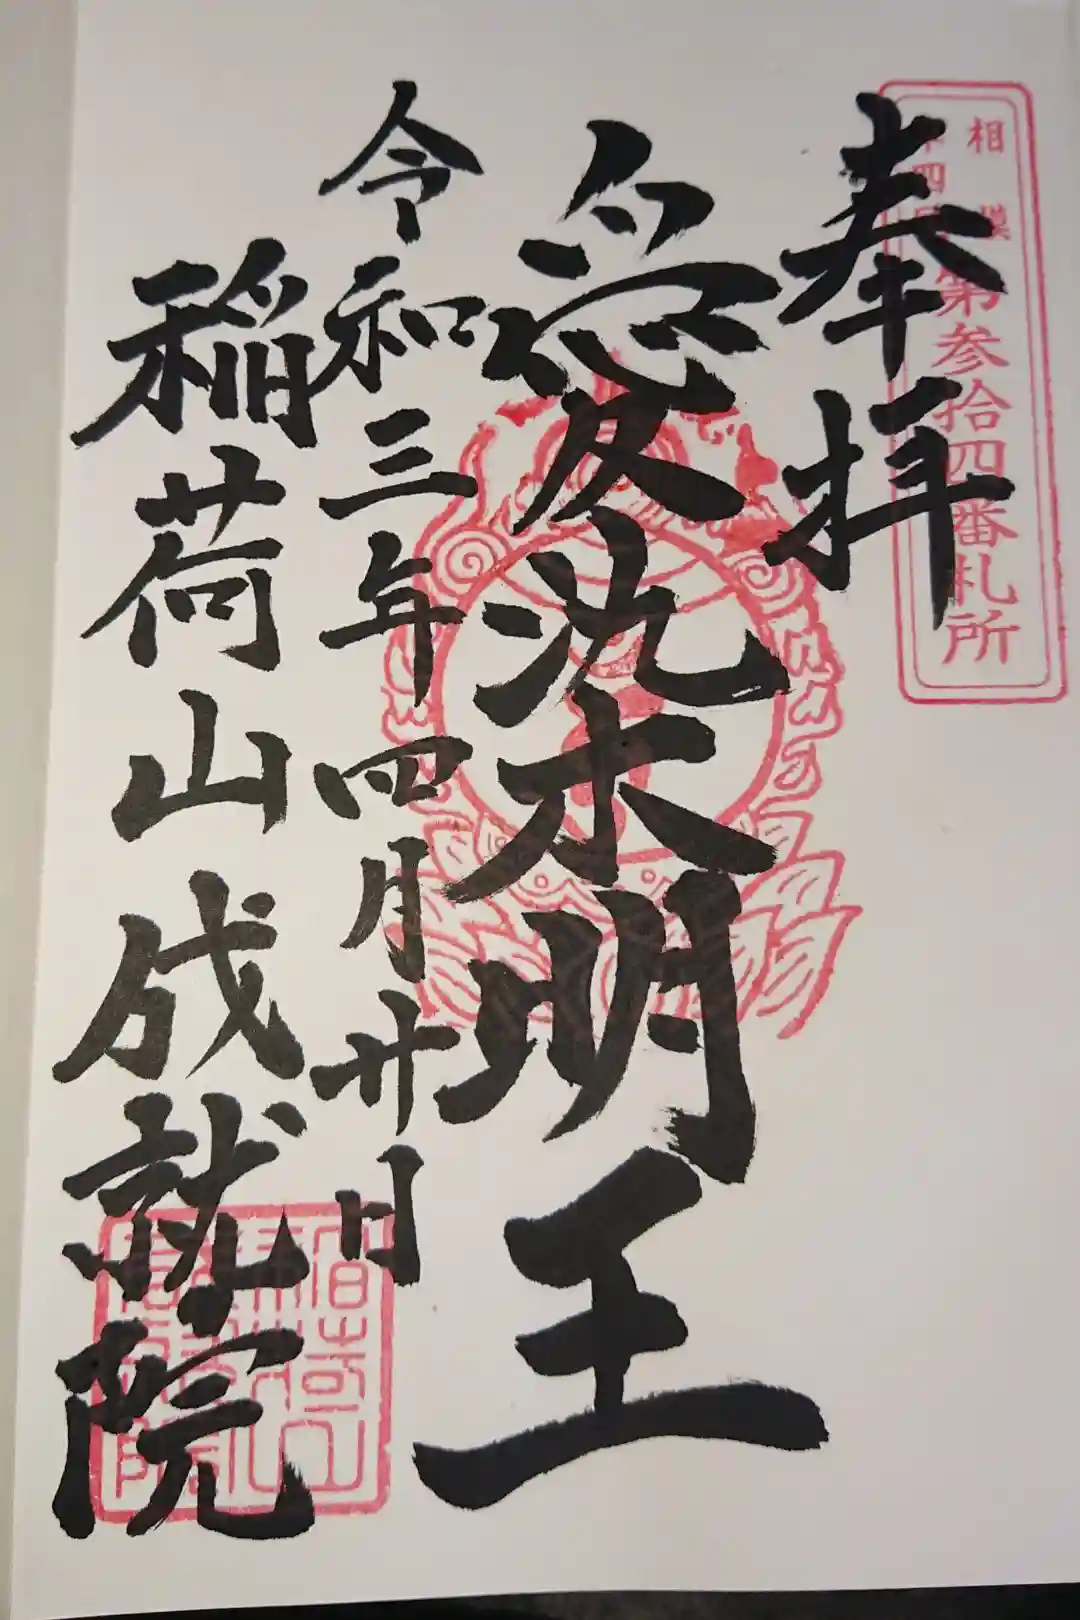 相模
第参拾四番札所
奉拝
愛染明王
令和三年四月廿日
稲荷山成就院